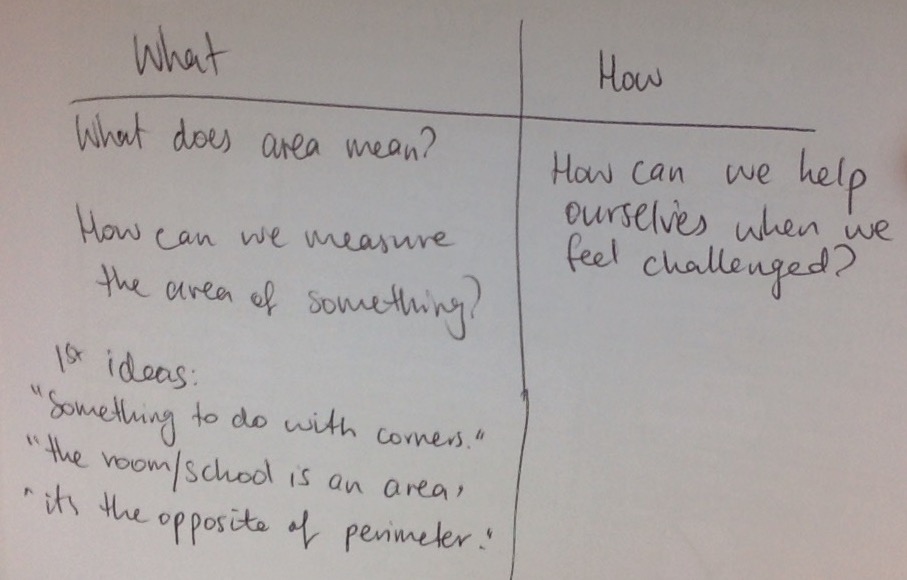 What
What does area mean?
How can we measure
the area of something?
1st ideas:
"Something to do with corners."
"the room/school is an area,
"its the opposite of perimeter."
How
How can we help
ourselves when we
feel challenged?